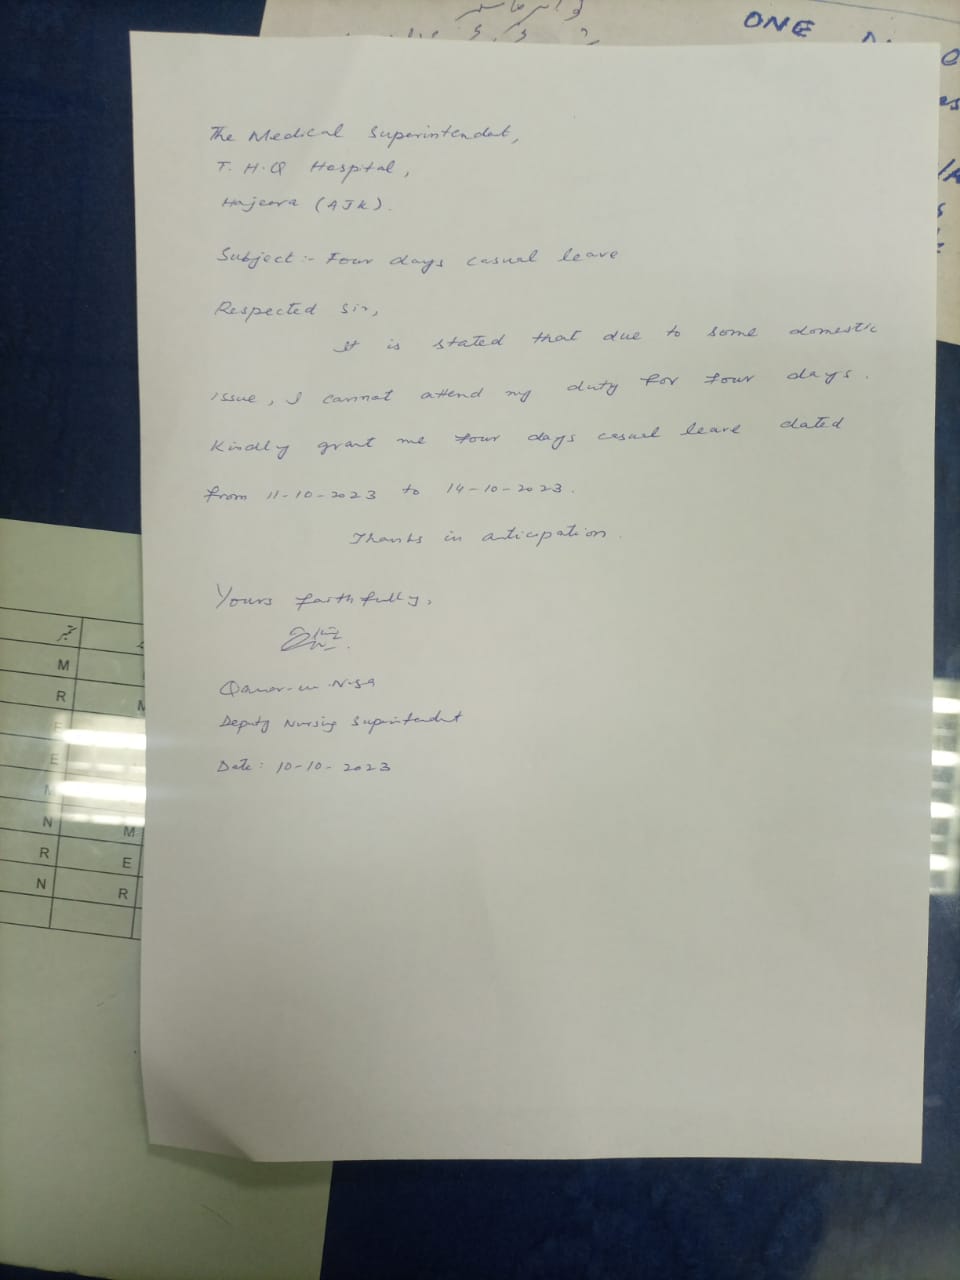 ONE
The Medical Superintendent,
T. H.Q Hospital,
Hajeera (AJK).
Subject :- Four days casual leave
Respected Sir,
It is stated that due to some domestic
issue, I cannot attend my duty for four days.
Kindly grant me four days casual leave dated
from 11-10-2023 to 14-10-2023.
Thanks in anticipation.
Yours faithfully,
Qamar-un-Nisa
Deputy Nursing Superintendent
Date: 10-10-2023
M
R
E
N
M
R
E
N
R